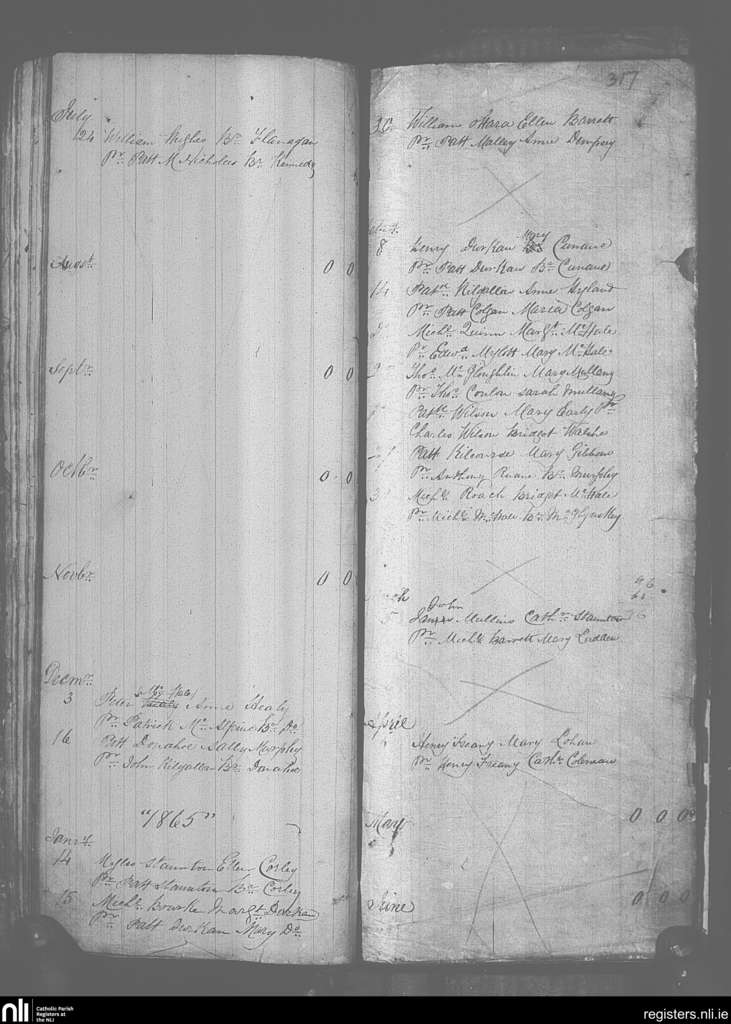 July
24 William Hughes Br. Flanagan
Pr. Patt McNicholas Br. Kennedy
Augst. 0 0
Septr. 0 0
Octbr. 0 0
Novbr. 0 0
Decmr.
3 Peter Anne Healy
Pr. Patrick Br. Do.
16 Patt Donahoe Sally Murphy
Pr. John Kilgallon Br. Donahoe
"1865"
Jany.
14 Myles Staunton Ellen Corley
Pr. Patt Staunton Br. Corley
15 Michl. Bourke Margt. Durkan
Pr. Patt Durkan Mary Do.
317
30 William oHara Ellen Barrett
Pr. Patt Malley Anne Dempsey
8 Henry Durkan Mary Cunane
Pr. Patt Durkan Br. Cunane
14 Patk. Kilgallon Anne Hyland
Pr. Patt Colgan Maria Colgan
Michl. Quinn Margt. McHale
Pr. Edwd. Mylott Mary McHale
Thos. McGloughlin Mary Mullany
Pr. Thos. Conlon Sarah Mullany
Patk. Wilson Mary Early Pr.
Charles Wilson Bridget Walshe
Patt Mary Gibbon
Pr. Anthony Ruane Br. Murphy
Michl. Roach Bridget McHale
Pr. Michl. McHale Br.
96
5 John Mullins Cath. Staunton
Pr. Michl. Barrett Mary Ludden
April
Henry Freany Mary Lohan
Pr. Henry Freany Cath. Coleman
May 0 0 0
June 0 0 0
nli Catholic Parish
Registers at
the NLI
registers.nli.ie